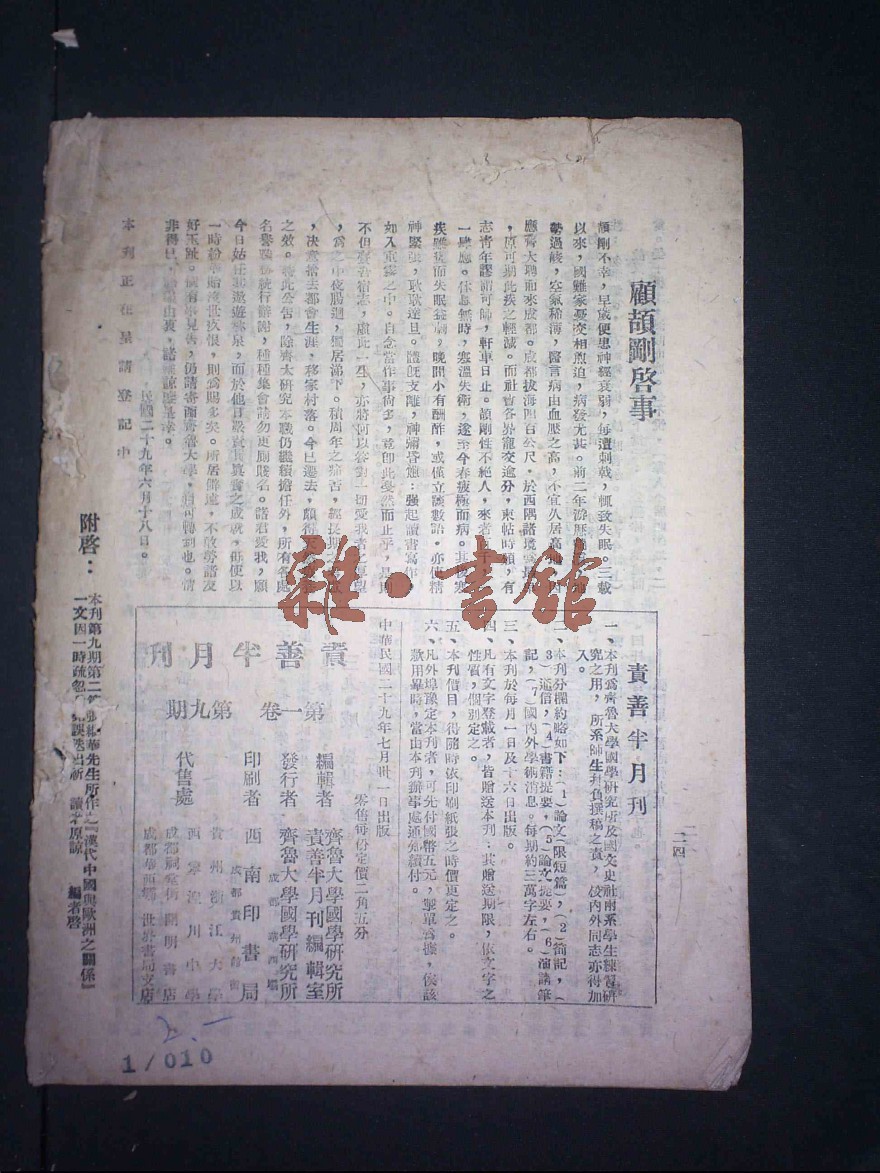 顧頡剛啓事
頡剛不幸，早歲便患神經衰弱，每遭刺戟，輒致失眠。二載
以來，國難家憂交相煎迫，病發尤甚。前二年游
勢過峻，空氣稀薄，醫言病由血壓之高，不宜久居高
應齊大聘而來成都。成都拔海四百公尺，於西隅諸境
，原可期此疾之輕減。而社會各界寵交逾分，柬帖時頒，有
志青年謬謂可師，軒車日止。頡剛性不絕人，來者
一肆應。休息無時，寒溫失衛，遂至今春疲極而病。其後
疾雖痊而失眠益劇，晚間小有酬酢，或僅立談數語，亦使精
神緊張，耿耿達旦。體旣支離，神彌昏憊：強起讀書寫作，
如入重霧之中。自念當作事尚多，竟卽此戛然而止乎，是真
不但登吾宿志，虛此一生，亦將何以答對一切愛我者之厚望
，爲之中夜腸迴，獨居涕下。積周年之痛苦，經長期之
，決意捨去都會生涯，移家村落。今已遷去，頗得
之效。特此公告，除齊大研究本職仍繼續擔任外，所有各處
名譽職務統行辭謝，種種集會請勿更廁賤名。諸君愛我，願
今日姑任其遨遊林泉，而於他日設責其眞實之成就，毋便以
一時紛華貽沒世疚恨，則爲賜多矣。所居僻遠，不敢勞諸友
好玉趾。倘有事見告，仍請寄函齊魯大學，自可轉到也。情
非得已，語發由衷，諸希諒鑒是幸。
民國二十九年六月十八日。
本刊正在呈請登記中
附啓：
本刊第九期第二
華先生所作之『漢代中國與歐洲之關係』
一文因一時疏忽
誤送出祈
讀者原諒
編者啓
責善半月刊
一、本刊爲齊魯大學國學研究所及國文史社兩系學生練習研
究之用，所系師生均負撰稿之責，校內外同志亦得加
入。
二、本刊分欄約略如下：（1）論文（限短篇），（2）劄記，（
3）通信，（4）書籍提要，（5）論文提要，（6）演講筆
記，（7）國內外學術消息。每期約三萬字左右。
三、本刊於每月一日及十六日出版。
四、凡有文字登載者，皆贈送本刊：其贈送期限，依文字之
性質，個別定之。
五、本刊價目，得隨時依印刷紙張之時價更定之。
六、凡外埠豫定本刊者，可先付國幣五元，掣單爲據，俟該
款用畢時，當由本刊辦事處通知續付。
中華民國二十九年七月卅一日出版
零售每份定價二角五分
責善半月刊
第一卷 第九期
編輯者 齊魯大學國學研究所
責善半月刊編輯室
發行者 齊魯大學國學研究所
成都華西壩
印刷者 西南印書局
成都貴州館街
代售處
貴州浙江大學
西寧湟川中學
成都祠堂街開明書店
成都華西壩世界書局支店
二四
雜·書館
2.-
1/010